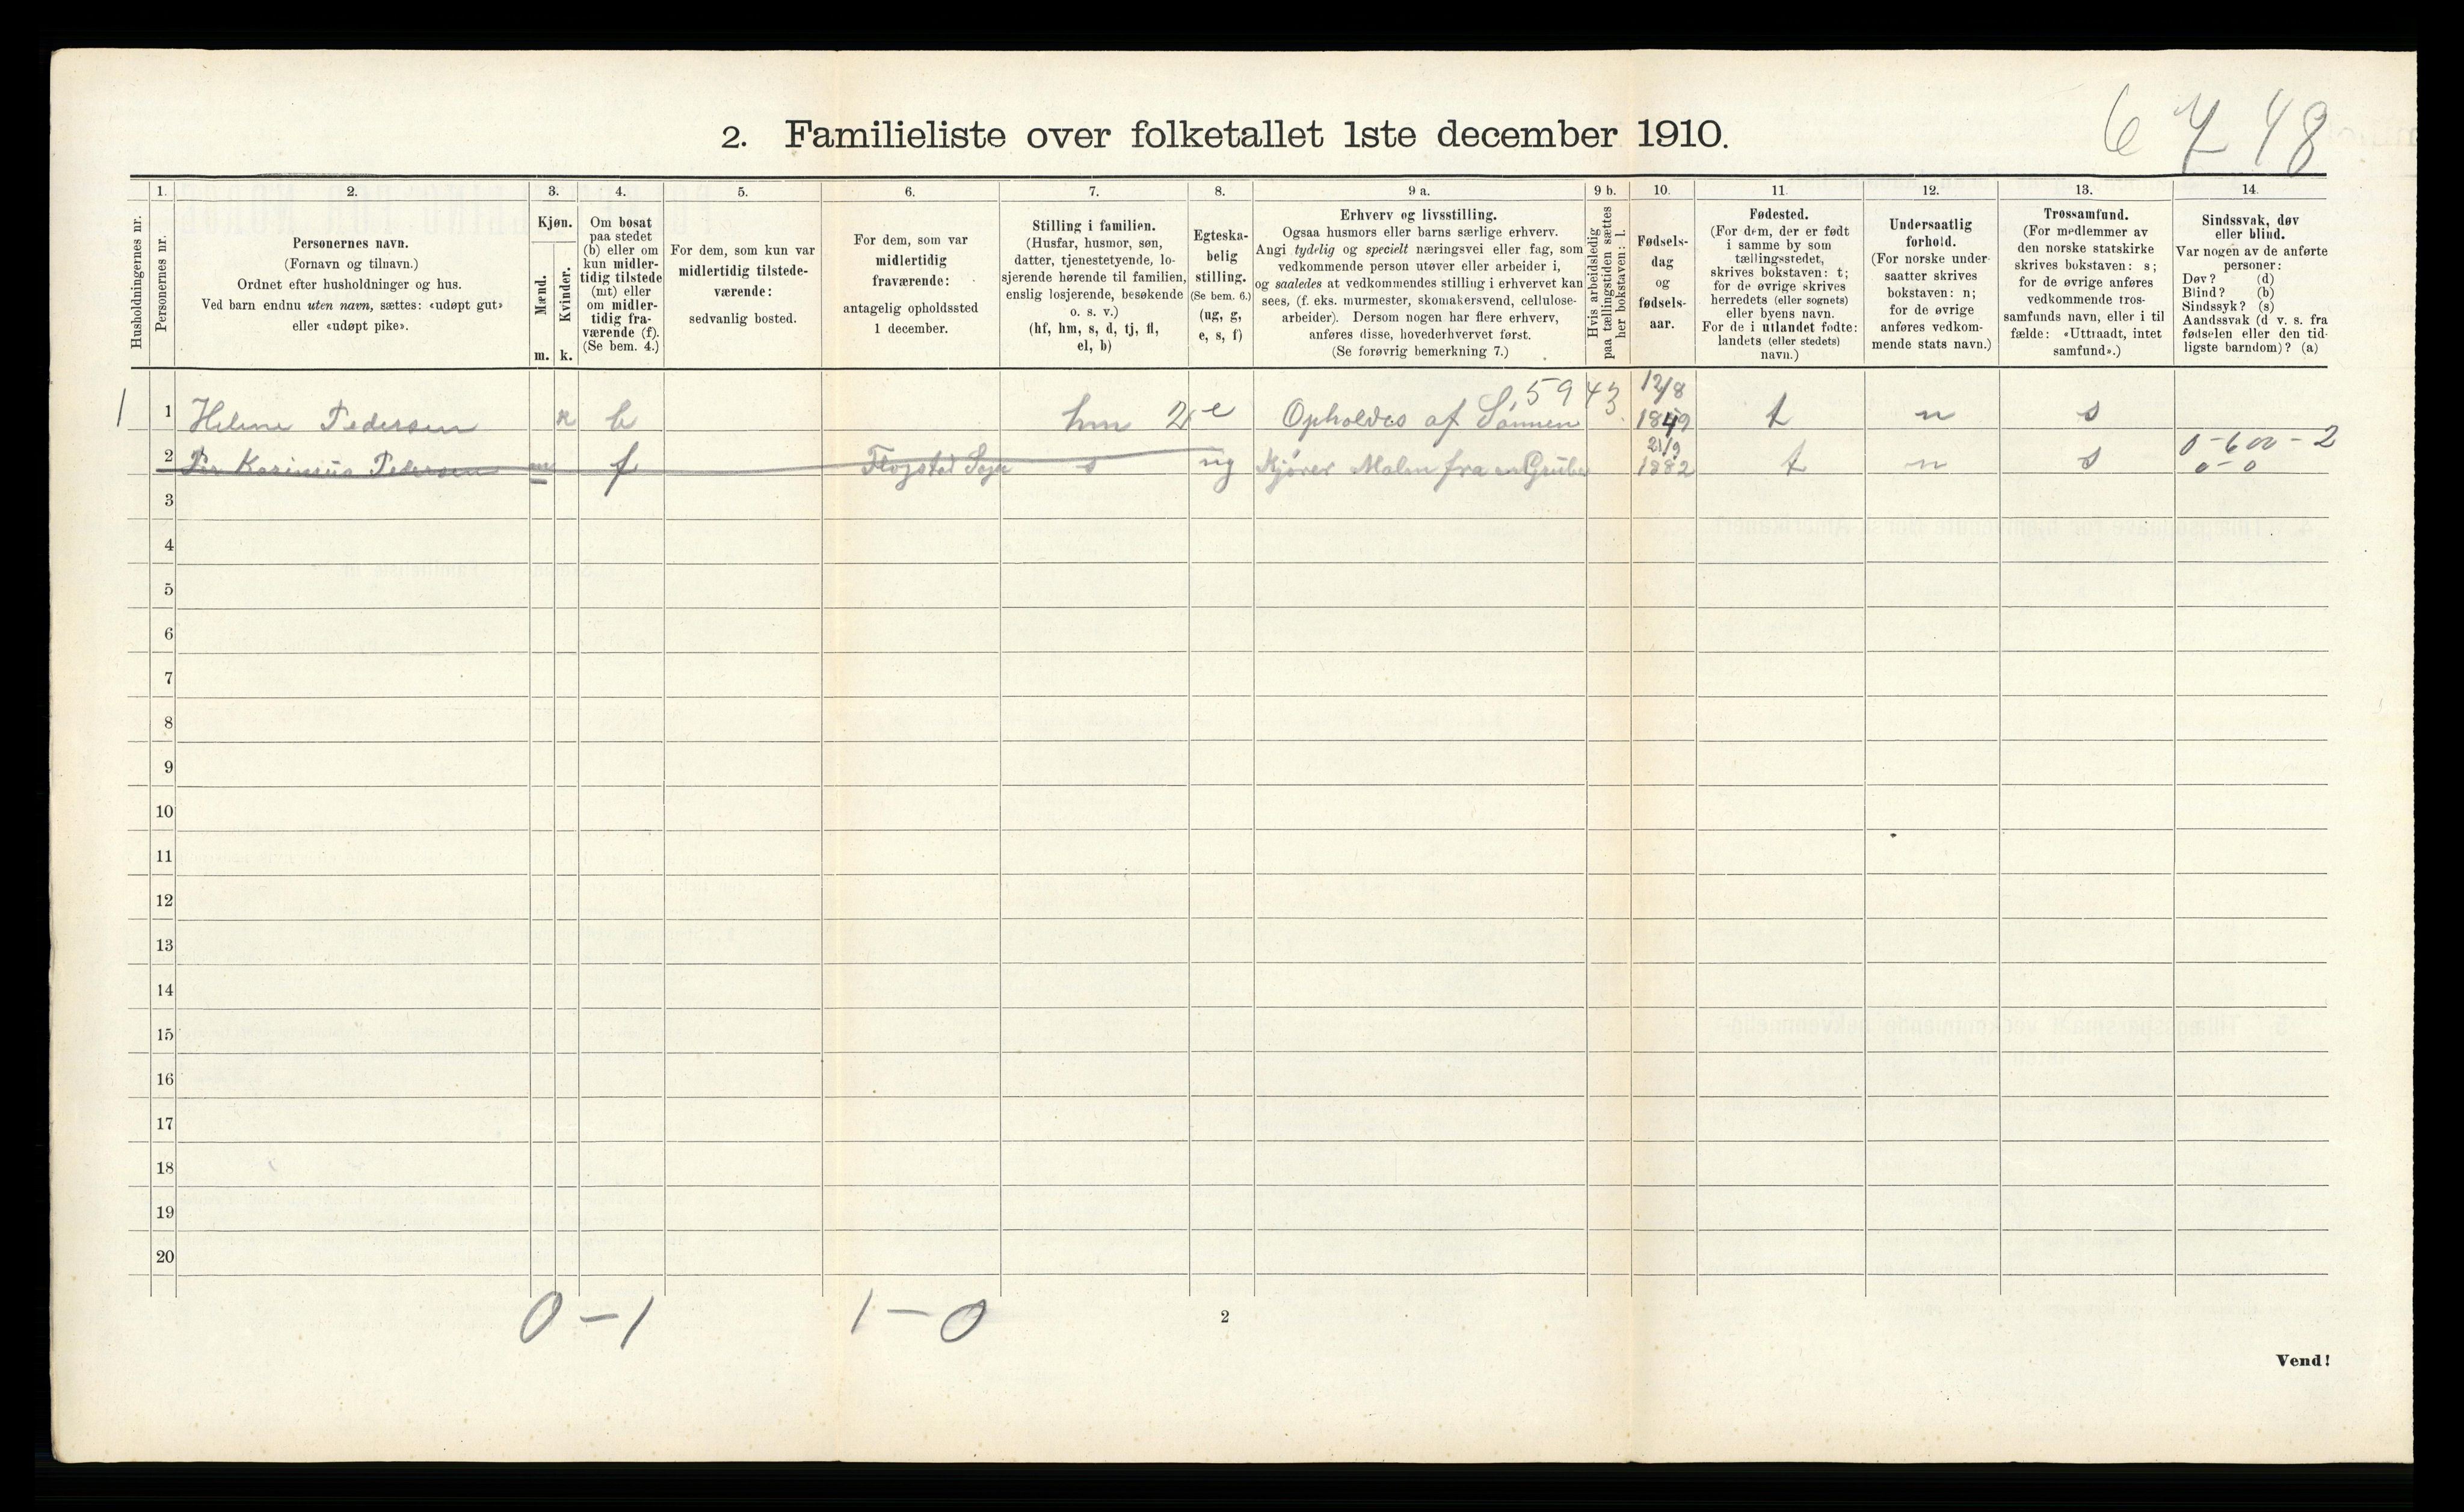 6 7 48
2. Familieliste over folketallet 1ste december 1910.
1. 2. 3. 4. 5. 6. 7. 8. 9 a. 9 b. 10. 11. 12. 13. 14.
Husholdningernes nr.
Personernes nr.
Personernes navn.
(Fornavn og tilnavn.)
Ordnet efter husholdninger og hus.
Ved barn endnu uten navn, sættes: «udøpt gut»
eller «udøpt pike».
Kjøn.
Mænd.
Kvinder.
m. k.
Om bosat
paa stedet
(b) eller om
kun midler-
tidig tilstede
(mt) eller
om midler-
tidig fra-
værende (f).
(Se bem. 4.)
For dem, som kun var
midlertidig tilstede-
værende:
sedvanlig bosted.
For dem, som var
midlertidig
fraværende:
antagelig opholdssted
1 december.
Stilling i familien.
(Husfar, husmor, søn,
datter, tjenestetyende, lo-
sjerende hørende til familien,
enslig losjerende, besøkende
o. s. v.)
(hf, hm, s, d, tj, fl,
el, b)
Egteska-
belig
stilling.
(Se bem. 6.)
(ug, g,
e, s, f)
Erhverv og livsstilling.
Ogsaa husmors eller barns særlige erhverv.
Angi tydelig og specielt næringsvei eller fag, som
vedkommende person utøver eller arbeider i,
og saaledes at vedkommendes stilling i erhvervet kan
sees, (f. eks. murmester, skomakersvend, cellulose-
arbeider). Dersom nogen har flere erhverv,
anføres disse, hovederhvervet først.
(Se forøvrig bemerkning 7.)
Hvis arbeidsledig
paa tællingstiden sættes
her bokstaven: l.
Fødsels-
dag
og
fødsels-
aar.
Fødested.
(For dem, der er født
i samme by som
tællingsstedet,
skrives bokstaven: t;
for de øvrige skrives
herredets (eller sognets)
eller byens navn.
For de i utlandet fødte:
landets (eller stedets)
navn.)
Undersaatlig
forhold.
(For norske under-
saatter skrives
bokstaven: n;
for de øvrige
anføres vedkom-
mende stats navn.)
Trossamfund.
(For medlemmer av
den norske statskirke
skrives bokstaven: s;
for de øvrige anføres
vedkommende tros-
samfunds navn, eller i til
fælde: «Uttraadt, intet
samfund».)
Sindssvak, døv
eller blind.
Var nogen av de anførte
personer:
Døv? (d)
Blind? (b)
Sindssyk? (s)
Aandssvak (d v. s. fra
fødselen eller den tid-
ligste barndom)? (a)
5943 12/8
1 1 Helene Pedersen k b hm 2 e Opholdes af Sønnen 1849 t n s
21/9 0-600-2
2 Per Karinius Pedersen m f s ug Kjører Malm fra en Grube 1882 t n s 0-0
3
4
5
6
7
8
9
10
11
12
13
14
15
16
17
18
19
20
0-1 1-0
2
Vend!